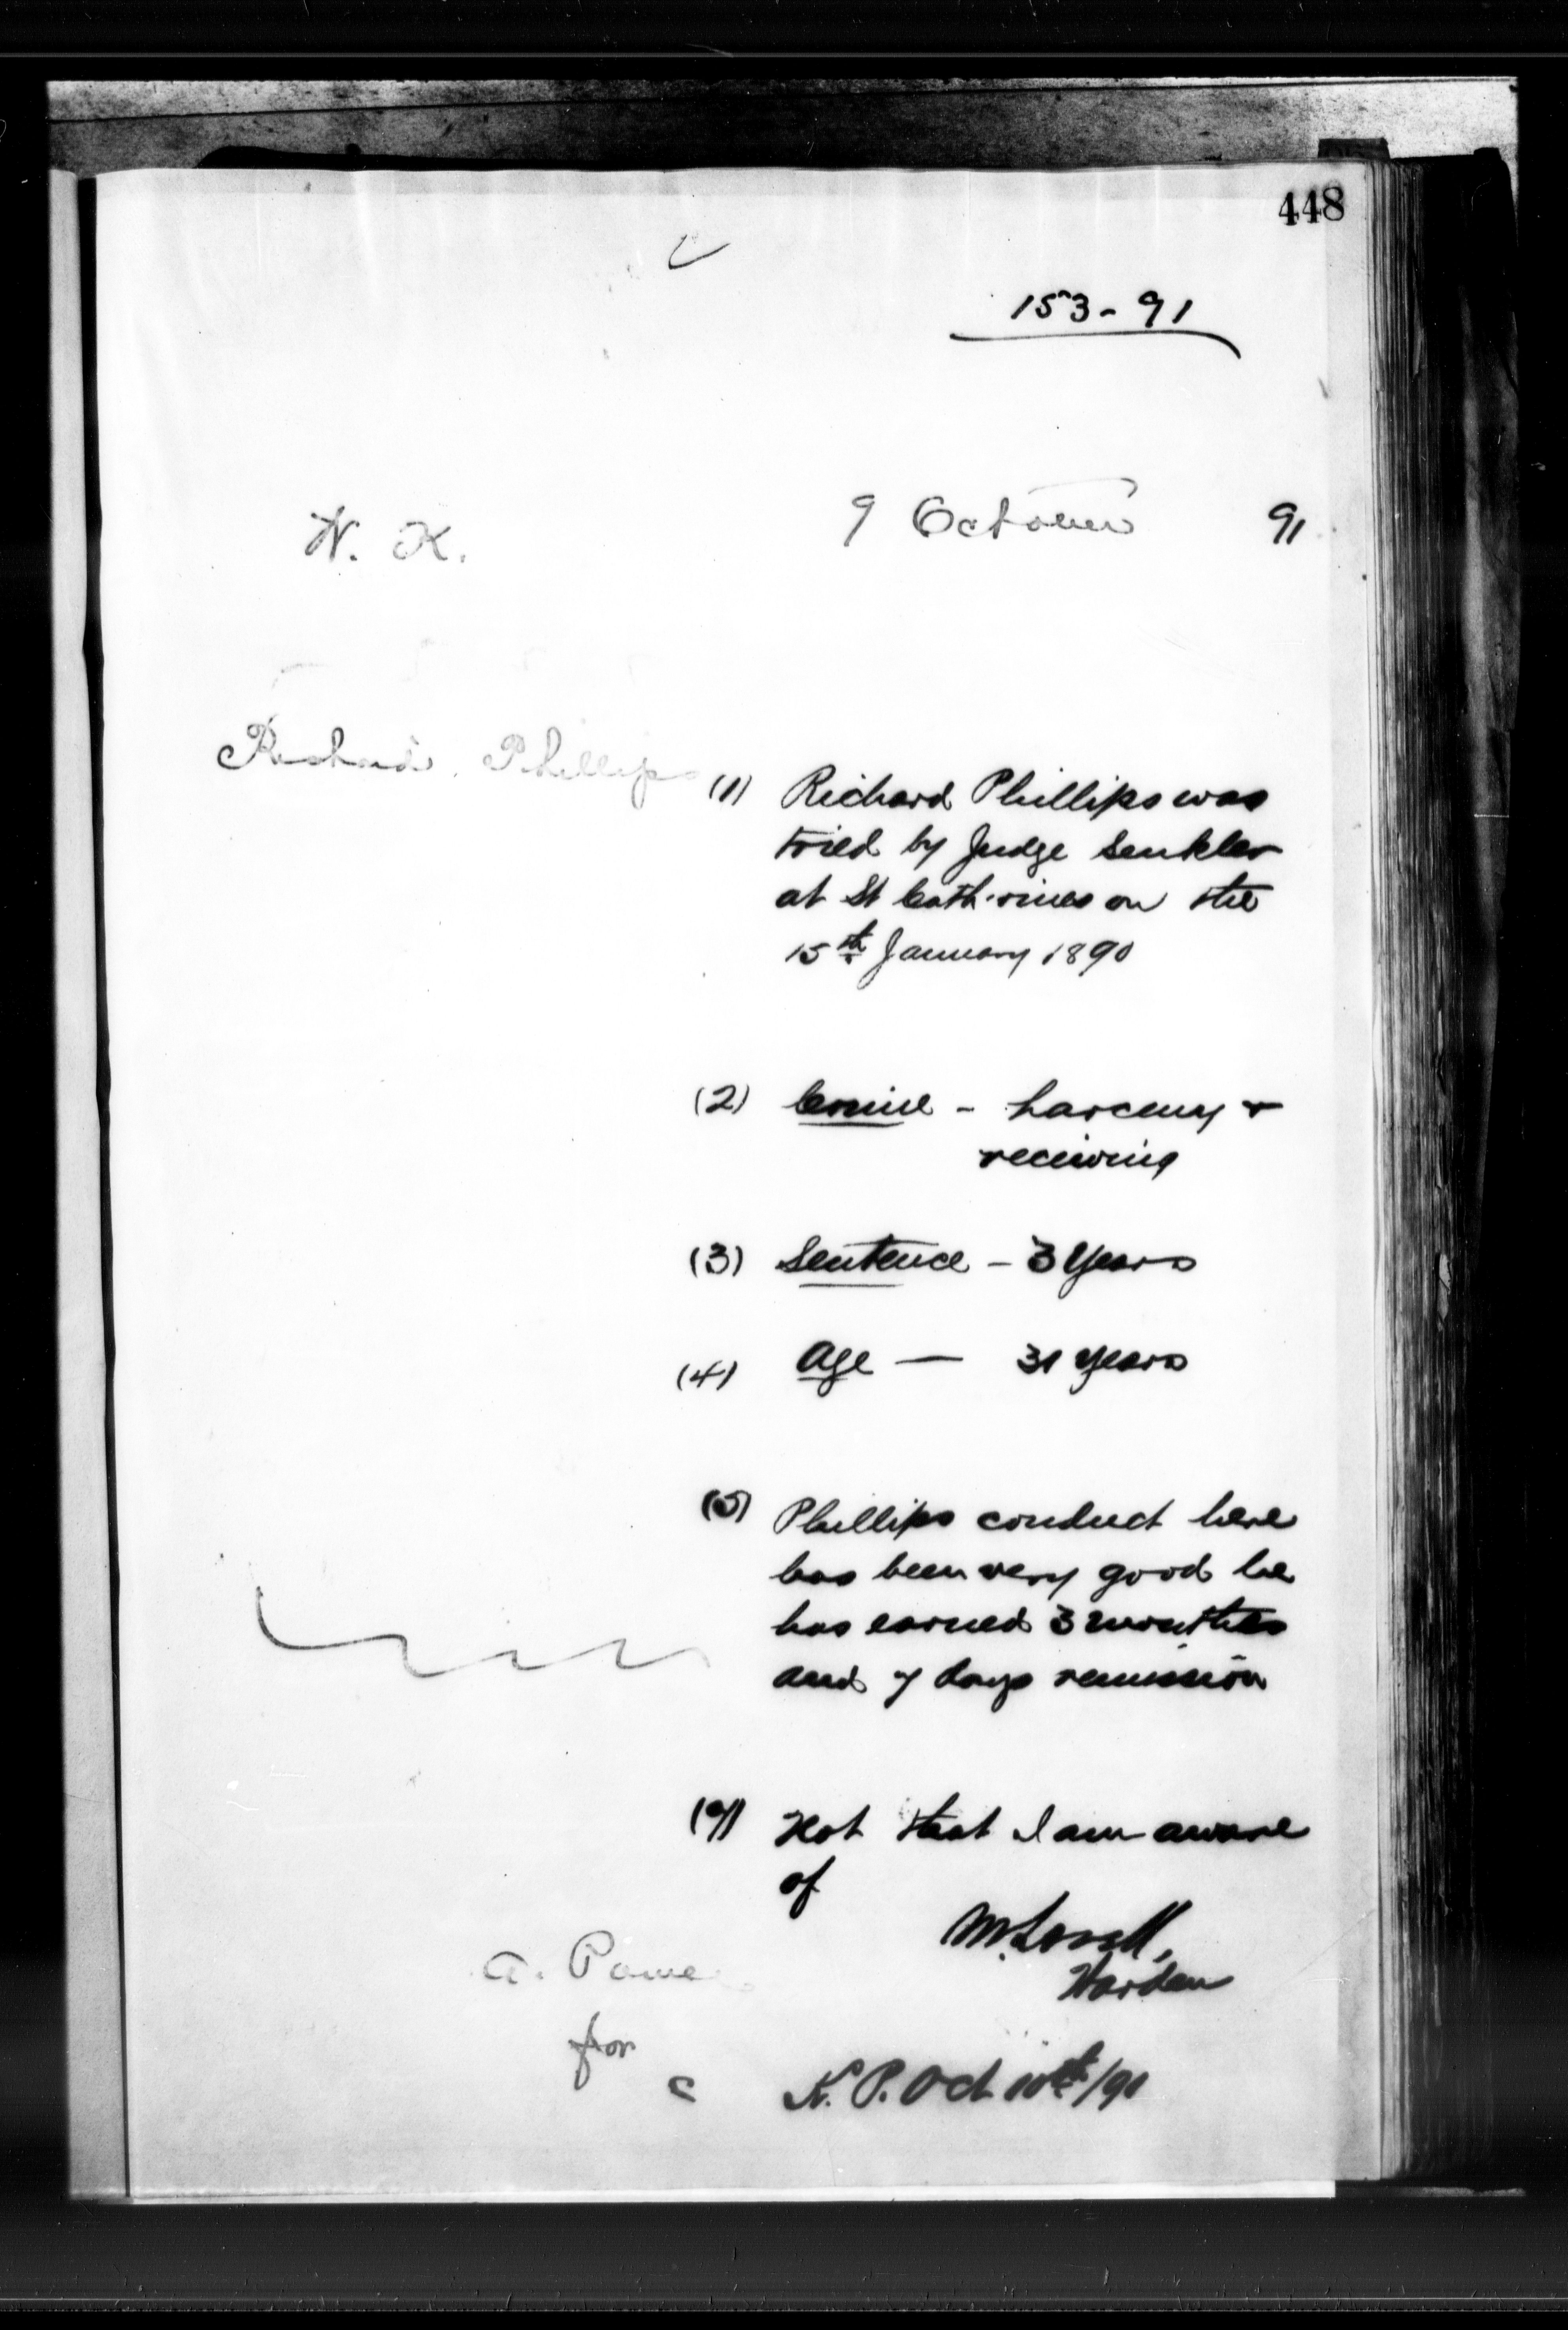 448
153-91
9 October 91
W. K.
Richard Phillips
(1) Richard Phillips was
tried by Judge Senkler
at St Catherines on the
15th January 1890
(2) Crime - Larceny &
receiving
(3) Sentence - 3 Years
(4) Age — 31 years
(5) Phillips conduct here
has been very good he
has earned 3 months
and 7 days remission
Not that I am aware
of
M. Lavell,
Warden
A. Power
for
K. P. Oct 10th/91